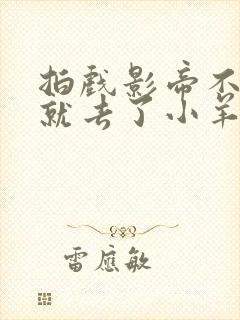 拍戏影帝不
就去了小羊
雷應敏